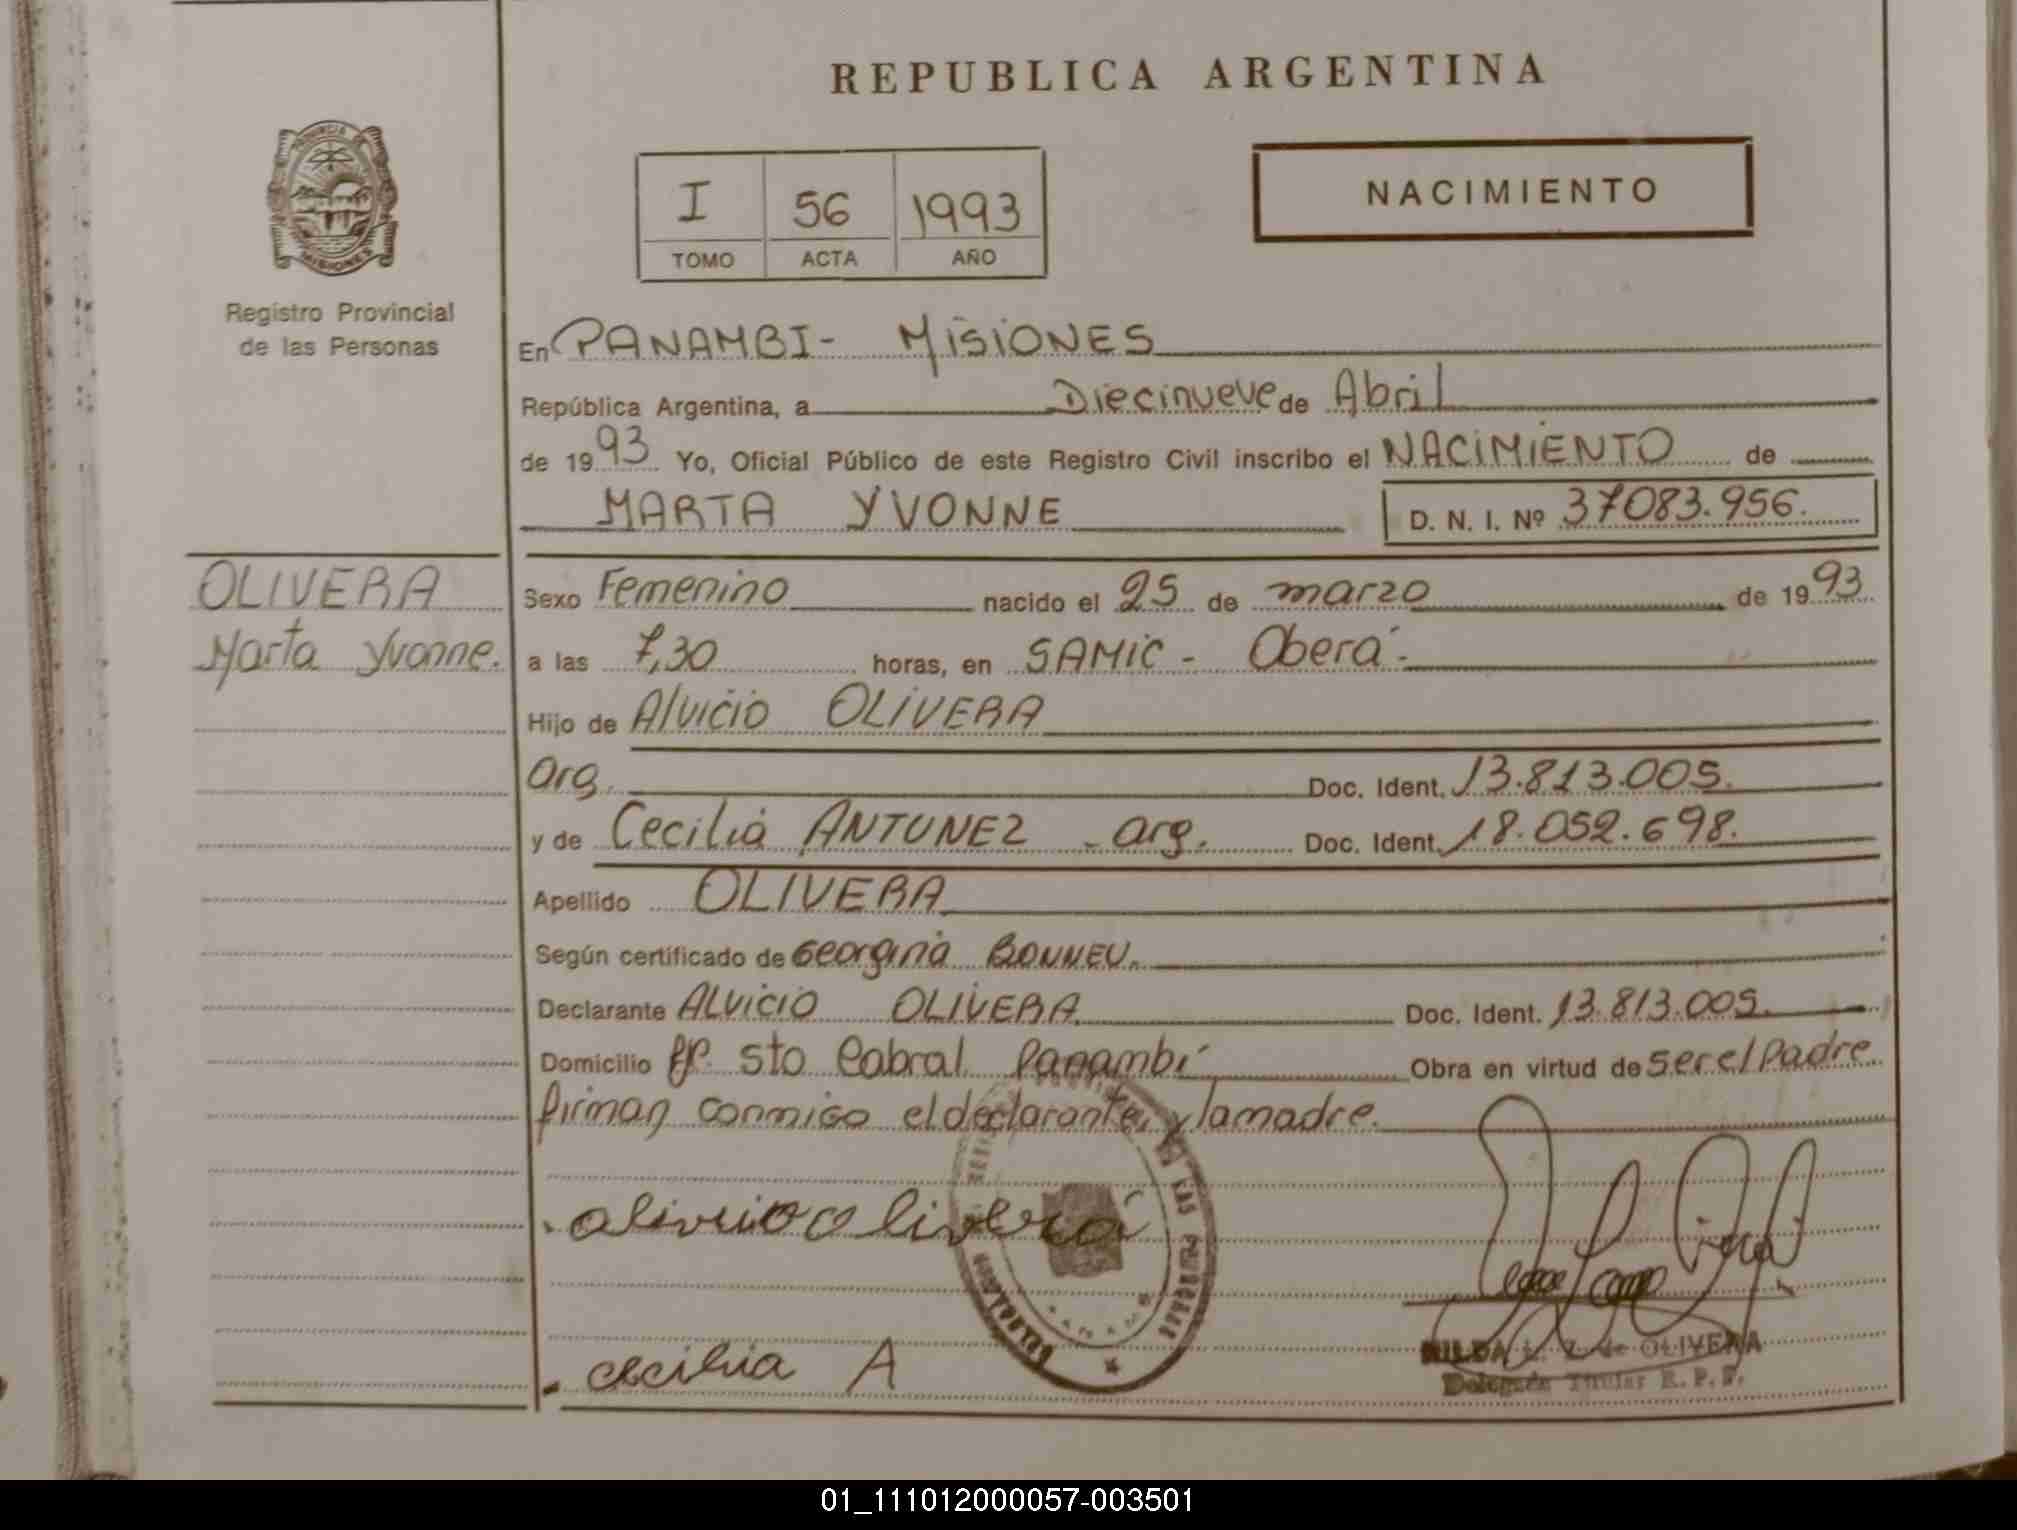 REPUBLICA ARGENTINA
PROVINCIA DE
MISIONES
Registro Provincial
de las Personas
I 56 1993
TOMO ACTA AÑO
NACIMIENTO
En PANAMBI- MISIONES
República Argentina, a Diecinueve de Abril
de 1993 Yo, Oficial Público de este Registro Civil inscribo el NACIMIENTO de
MARTA YVONNE D. N. I. Nº 37083.956.
OLIVERA
Marta Yvonne.
Sexo Femenino nacido el 25 de marzo de 1993
a las 7,30 horas, en SAMIC - Oberá-
Hijo de Alvicio OLIVERA
Arg. Doc. Ident. 13.813.005.
y de Cecilia ANTUNEZ - arg. Doc. Ident. 18.052.698.
Apellido OLIVERA
Según certificado de Georgina BONNEU.
Declarante ALVICIO OLIVERA Doc. Ident. 13.813.005.
Domicilio Pje. Sto Cabral Panambí Obra en virtud de ser el Padre
firman conmigo el declarante, y la madre.
alivicio olivera
cecilia A
HILDA L. Z. de OLIVERA
Delegada Titular R. P. P.
01_111012000057-003501